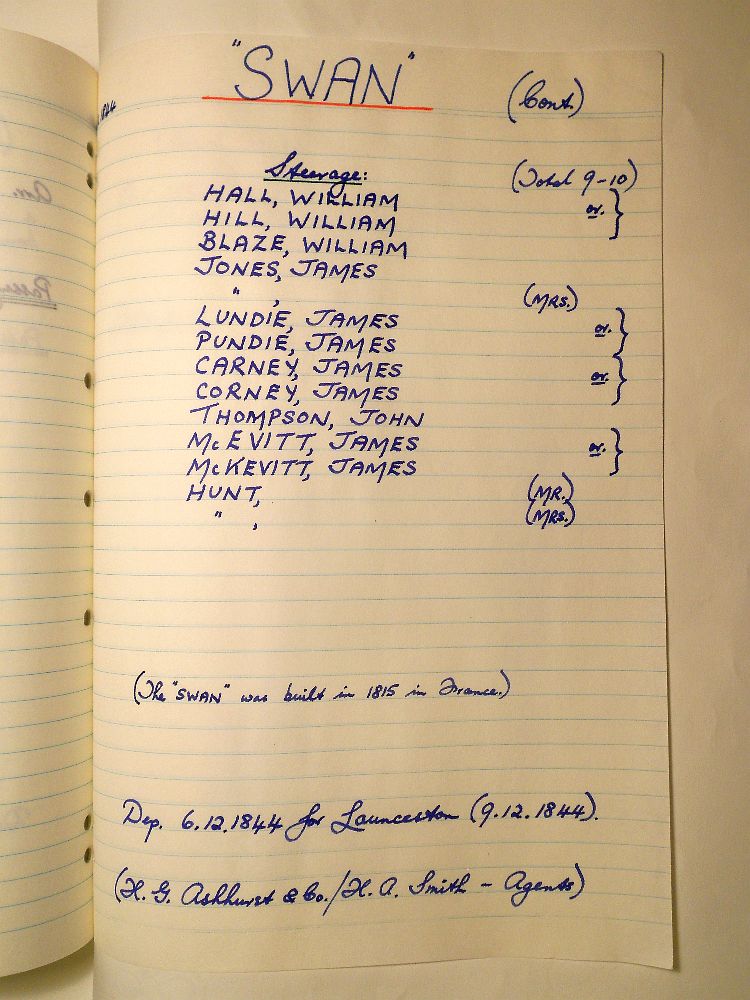 "SWAN" (Cont.)
Steerage: (Total 9-10)
HALL, WILLIAM or. }
HILL, WILLIAM
BLAZE, WILLIAM
JONES, JAMES
" , (MRS.)
LUNDIE, JAMES or. }
PUNDIE, JAMES
CARNEY, JAMES or. }
CORNEY, JAMES
THOMPSON, JOHN
McEVITT, JAMES or. }
McKEVITT, JAMES
HUNT, (MR.)
" , (MRS.)
(The "SWAN" was built in 1815 in France.)
Dep. 6.12.1844 for Launceston (9.12.1844).
(H. G. Ashhurst & Co./H. A. Smith - Agents)